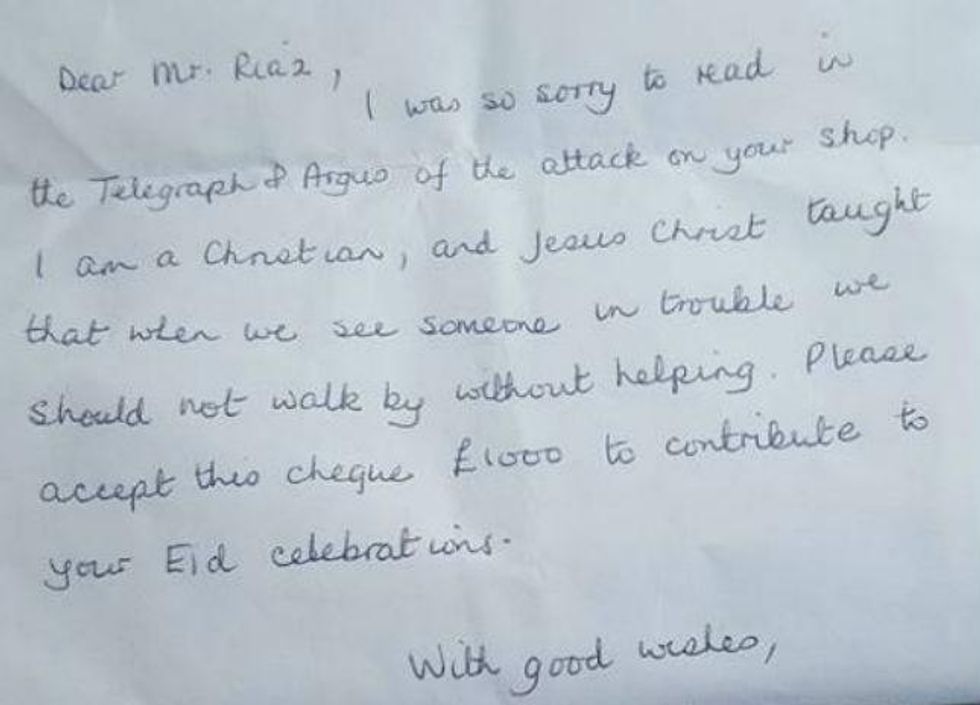 Dear Mr. Riaz,
I was so sorry to read in
the Telegraph & Argus of the attack on your shop.
I am a Christian, and Jesus Christ taught
that when we see someone in trouble we
should not walk by without helping. Please
accept this cheque £1000 to contribute to
your Eid celebrations.
With good wishes,